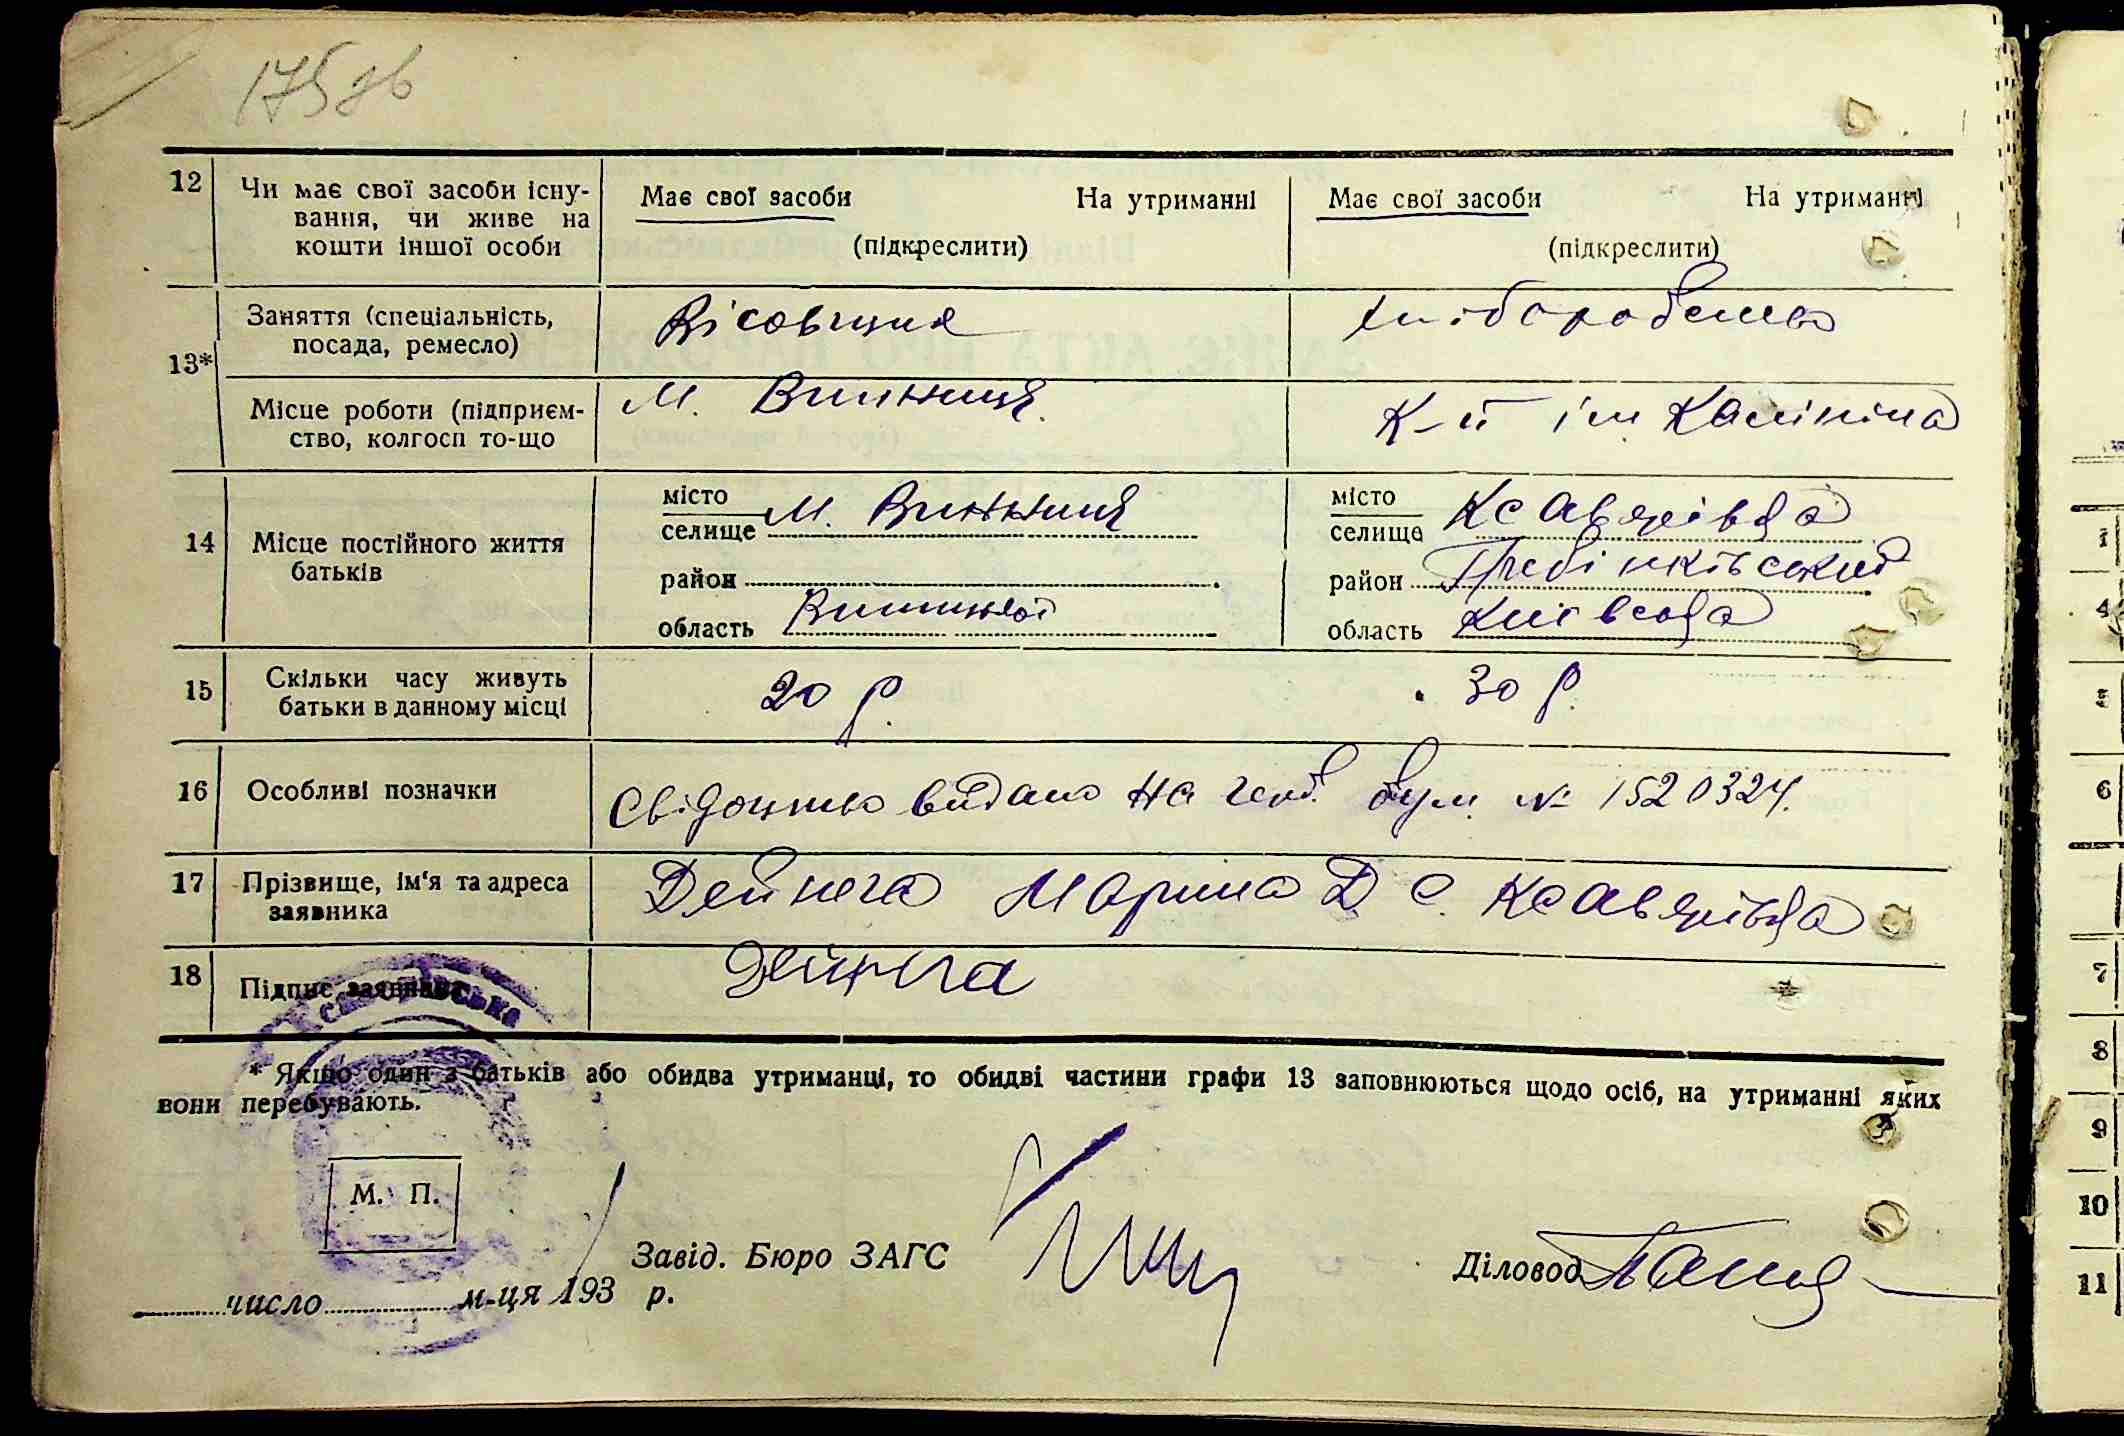 175 зв
12 Чи має свої засоби існу-
вання, чи живе на
кошти іншої особи
Має свої засоби На утриманні
(підкреслити)
Має свої засоби На утриманні
(підкреслити)
13*
Заняття (спеціальність,
посада, ремесло)
Вісовщик
хліборобство
Місце роботи (підприєм-
ство, колгосп то-що
м. Винниця.
К-п ім Калініна
14 Місце постійного життя
батьків
місто
селище м. Винниця
район
область Винницької
місто
селище Ксаверівка
район Гребінківський
область Київська
15 Скільки часу живуть
батьки в данному місці
20 р.
30 р.
16 Особливі позначки
Свідоцтво видано на герб. бум. № 1520324.
17 Прізвище, ім'я та адреса
заявника
Дейнега Марина Д с. Ксаверівка
18 Підпис заявника
Дейнега
* Якщо один з батьків або обидва утриманці, то обидві частини графи 13 заповнюються щодо осіб, на утриманні яких
вони перебувають.
М. П.
число м-ця 193 р.
Завід. Бюро ЗАГС
Діловод
4
5
6
7
8
9
10
11